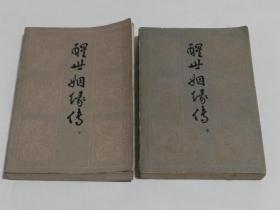 醒世姻缘传
下
醒世姻缘传
中